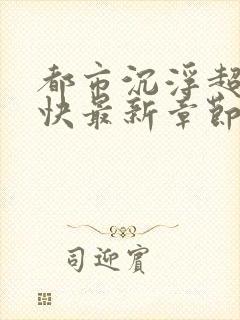 都市沉浮超
快最新章節
司迎賓